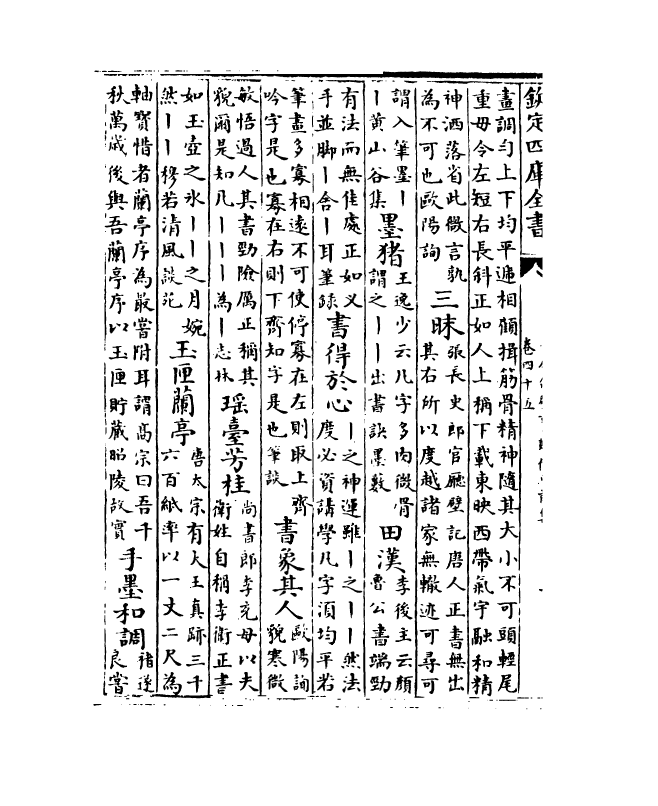 欽定四庫全書
卷四十五
畫調勻上下均平遞相顧揖筋骨精神隨其大小不可頭輕尾
重毋令左短右長斜正如人上稱下載東映西帶氣宇融和精
神洒落省此微言孰
為不可也歐陽詢
三昧
張長史郎官廳壁記唐人正書無出
其右所以度越諸家無轍迹可尋可
謂入筆墨丨
丨黃山谷集
墨猪
王逸少云凡字多肉微骨
謂之丨丨出書訣墨藪
田漢
李後主云顏
魯公書端勁
有法而無佳處正如乂
手並脚丨舍丨耳筆録
書得於心
丨之神運雖丨之丨丨然法
度必資講學凡字須均平若
筆畫多寡相遠不可使停寡在左則取上齊
吟字是也寡在右則下齊知字是也筆談
書象其人
歐陽詢
貌寒微
敏悟過人其書勁險厲正稱其
貌爾是知凡丨丨丨為丨志林
瑶臺芳桂
尚書郎李充母以夫
衛姓自稱李衛正書
如玉壺之氷丨丨之月婉
然丨丨穆若清風談苑
玉匣蘭亭
唐太宗有大王真跡三千
六百紙率以一丈二尺為
軸寶惜者蘭亭序為最嘗附耳謂高宗曰吾千
秋萬歲後與吾蘭亭序以玉匣貯藏昭陵故實
手墨和調
褚遂
良嘗